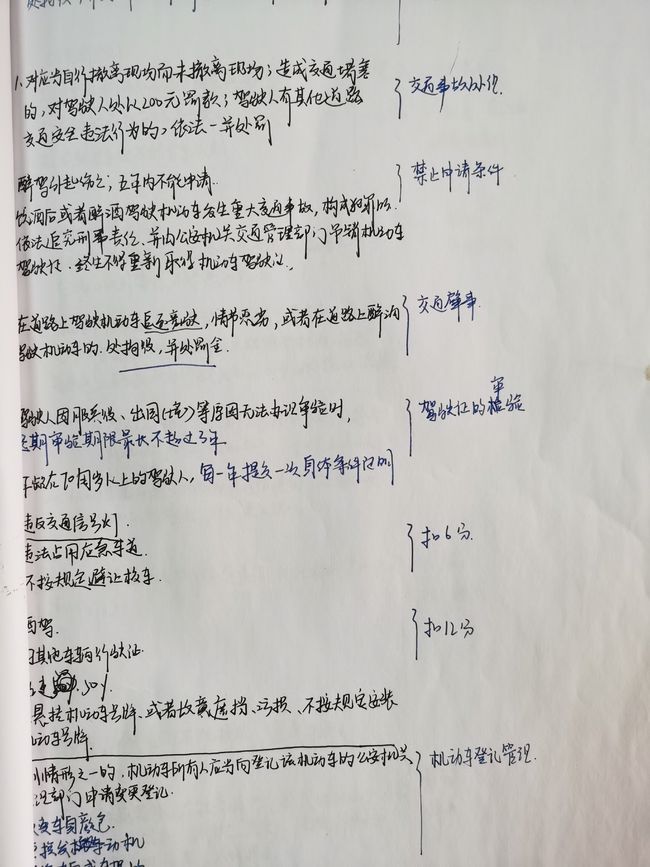 1. 对应当自行撤离现场而未撤离现场；造成交通堵塞
的，对驾驶人处以200元罚款；驾驶人有其他道路
交通安全违法行为的，依法一并处罚
交通事故处理
醉驾 五年内不能申请
禁止申请条件
饮酒后或者醉酒驾驶机动车发生重大交通事故，构成犯罪的
依法追究刑事责任，并由公安机关交通管理部门吊销机动车
驾驶证，终生不得重新取得机动车驾驶证。
在道路上驾驶机动车追逐竞驶，情节恶劣，或者在道路上醉酒
驾驶机动车的，处拘役，并处罚金.
交通肇事.
驾驶人因服兵役、出国(境)等原因无法办理审验时，
延期审验期限最长不超过3年
驾驶证的审验
年龄在70周岁以上的驾驶人，每一年提交一次身体条件证明
违反交通信号灯.
违法占用应急车道.
不按规定避让校车.
扣6分.
酒驾.
扣12分
其他车辆行驶证.
50%
悬挂机动车号牌、或者故意遮挡、污损、不按规定安装
机动车号牌.
情形之一的，机动车所有人应当向登记该机动车的公安机关
管理部门申请变更登记.
机动车登记管理.
改变车身颜色.
更换发动机